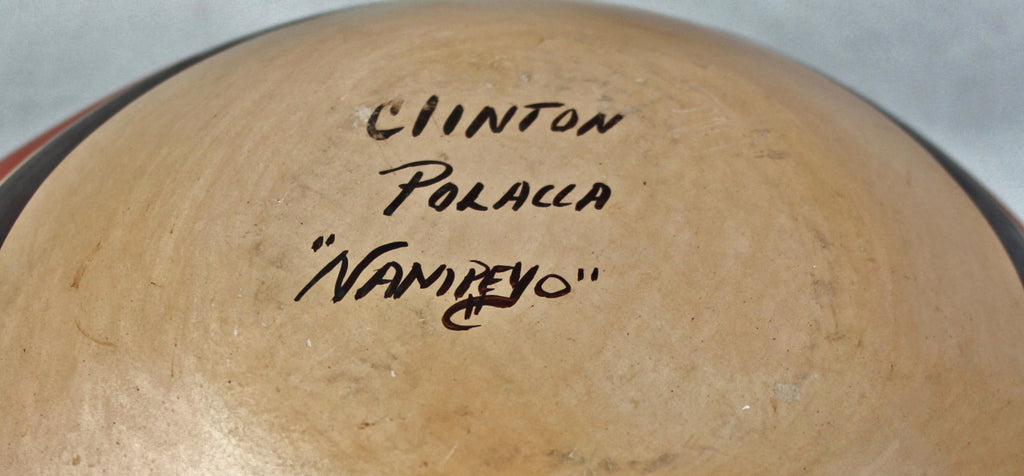 CLINTON
POLACCA
"NAMPEYO"